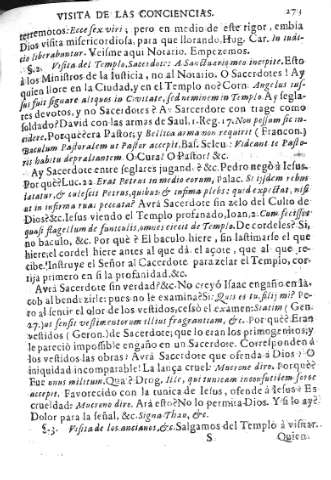 VISITA DE LAS CONCIENCIAS. 273
terremotos: Ecce sex viri; pero en medio de este rigor, embia
Dios visita misericordiosa, para que llorando, Hug. Car. In judi-
cio liberabuntur. Veisme aqui Notario. Empezemos.
§.2. Visita del Templo, Sacerdote: A Sanctuario meo incipite. Esto
à los Ministros de la Justicia, no al Notario. O Sacerdotes! Ay
quien llore en la Ciudad, y en el Templo no? Corn. Angelus jus-
sus fuit signare aliquos in Civitate, sed neminem in Templo. Ay segla-
res devotos, y no Sacerdotes? A! Sacerdote con trage como
soldado? David con las armas de Saul, 1. Reg. 17. Non possum sic in-
cedere. Porquè era Pastor; y Bellica arma non requirit (Francon.)
Baculum Pastoralem ut Pastor accepit. Bas. Seleu. Videant te Pasto-
ris habitu depraliantem. O Cura! O Pastor! &c.
Ay Sacerdote entre seglares jugand.? &c. Pedro negò à Iesus.
Por què? Luc. 22. Erat Petrus in medio eorum, Palac. Si ejsdem rebus
latatur, & cutescit Petrus, quibus & infima plebs: quid expectat, nisi
ut in inferna ruat peccata? Avrà Sacerdote sin zelo del Culto de
Dios? &c. Iesus viendo el Templo profanado, Ioan. 2. Cum fecisset
quasi flagellum de funiculis, omnes eiecit de Templo. De cordeles? Si,
no baculo, &c. Por què? El baculo hiere, sin lastimarse el que
hiere; el cordel hiere antes al que dà el açote, que al que re-
cibe. Instruye el Señor al Cacerdote para zelar el Templo, cor-
rija primero en si la profanidad. &c.
Avrà Sacerdote sin verdad? &c. No creyò Isaac engaño en Ia-
cob al bendezirle: pues no le examina? Si: Quis es tu, fili mi? Pe-
ro al sentir el olor de los vestidos, cessò el examen: Statim (Gen.
27.) ut sensit vestimentorum illius fragrantiam, &c. Por què? Eran
vestidos (Geron.) de Sacerdote; que lo eran los primogenitos; y
le pareciò impossible engaño en un Sacerdote. Corresponden à
los vestidos las obras? Avrà Sacerdote que ofenda à Dios? O
iniquidad incomparable! La lança cruel: Mucrone diro. Porquè?
Fue unus militum. Qua? Drog. Ille, qui tunicam inconsutilem sorte
accepit. Favorecido con la tunica de Iesus, ofende à Iesus? Es
crueldad: Mucrone diro. Arà esto? No lo permita Dios. Y si lo ay?
Dolor para la señal, &c. Signa Thau, &c.
§.3. Visita de los ancianos, &c. Salgamos del Templo à visitar.
S Quien